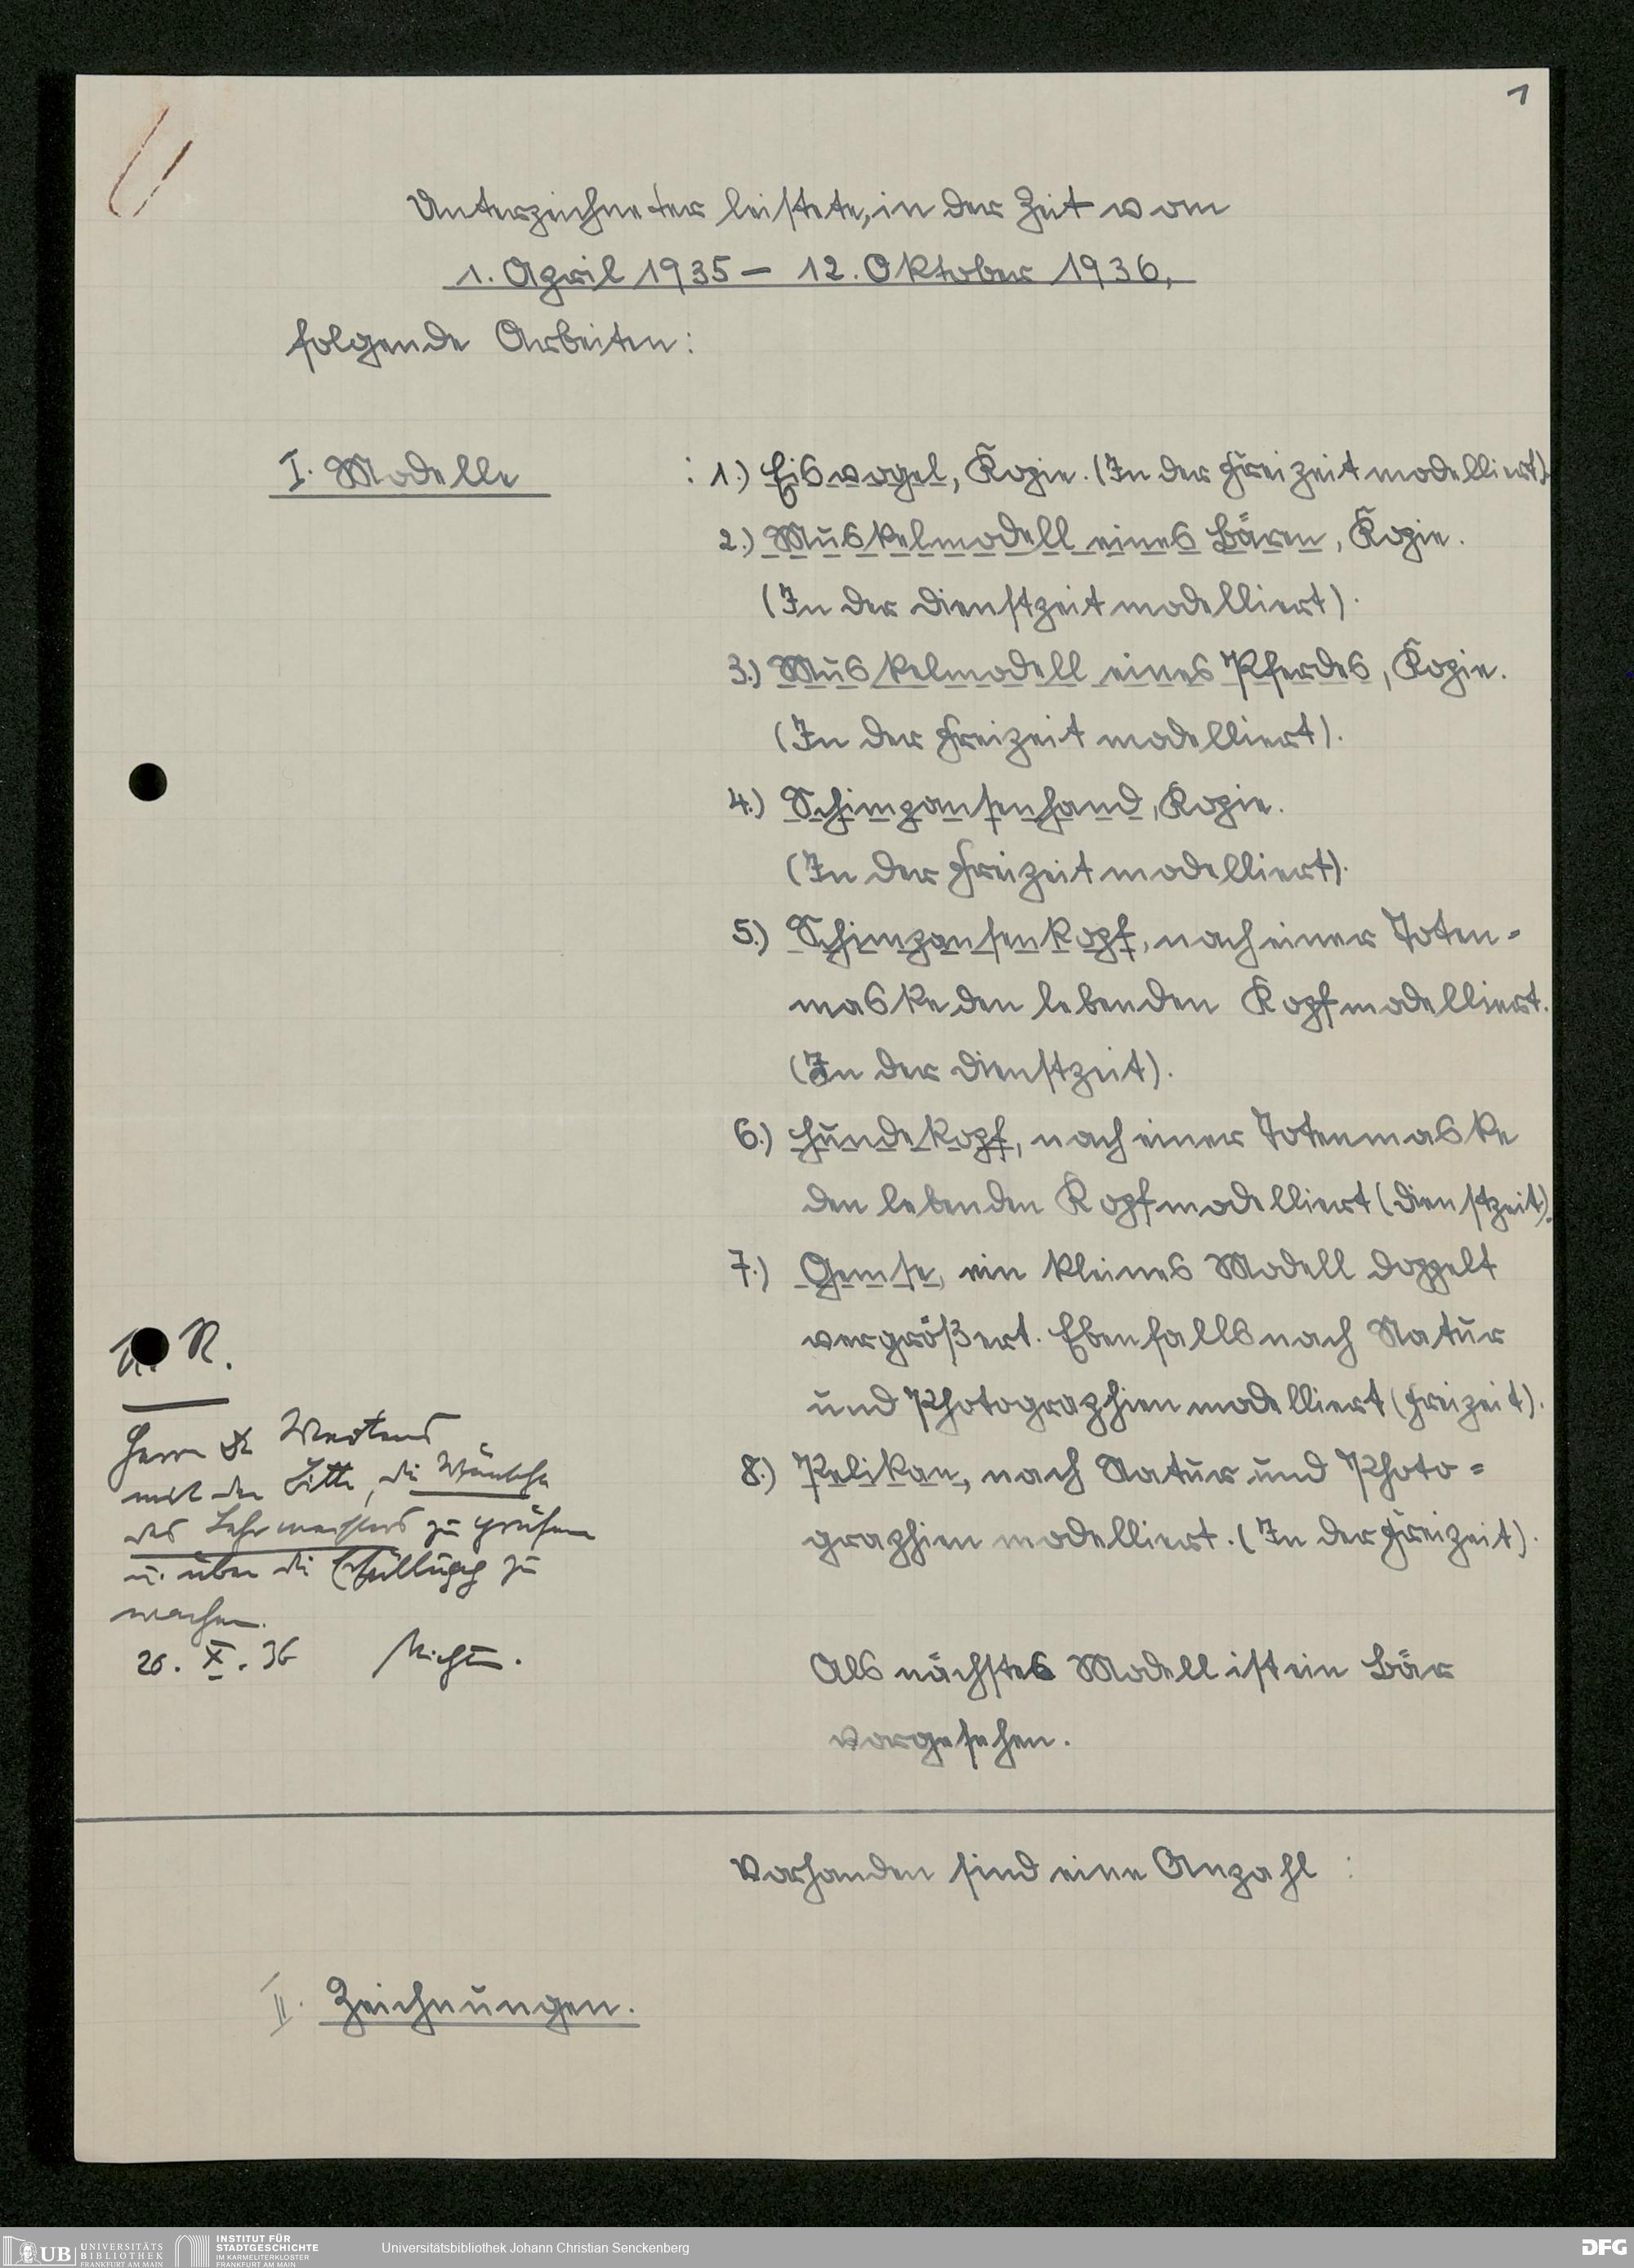 1
Unterzeichneter leistete, in der Zeit vom
1. April 1935 – 12. Oktober 1936,
folgende Arbeiten:
I. Modelle : 1.) Eisvogel, Kopie. (In der Freizeit modelliert).
2.) Muskelmodell eines Bären, Kopie.
(In der Dienstzeit modelliert).
3.) Muskelmodell eines Pferdes, Kopie.
(In der Freizeit modelliert).
4.) Schimpansenhand, Kopie.
(In der Freizeit modelliert).
5.) Schimpansenkopf, nach einer Toten=
maske den lebenden Kopf modelliert.
(In der Dienstzeit).
6.) Hundekopf, nach einer Totenmaske
den lebenden Kopf modelliert (Dienstzeit).
7.) Gemse, ein kleines Modell doppelt
vergrößert. Ebenfalls nach Natur
und Photographien modelliert (Freizeit).
8.) Pelikan, nach Natur und Photo=
graphien modelliert. (In der Freizeit).
Als nächstes Modell ist ein Bär
vorgesehen.
R.
Herrn Dr
mit der Bitte, die Wünsche
des Lehrmeisters zu prüfen
u. über die Erfüllung zu
wachen.
26. X. 36
Vorhanden sind eine Anzahl :
II. Zeichnungen.
UB UNIVERSITÄTS
BIBLIOTHEK
FRANKFURT AM MAIN
INSTITUT FÜR
STADTGESCHICHTE
IM KARMELITERKLOSTER
FRANKFURT AM MAIN
Universitätsbibliothek Johann Christian Senckenberg
DFG